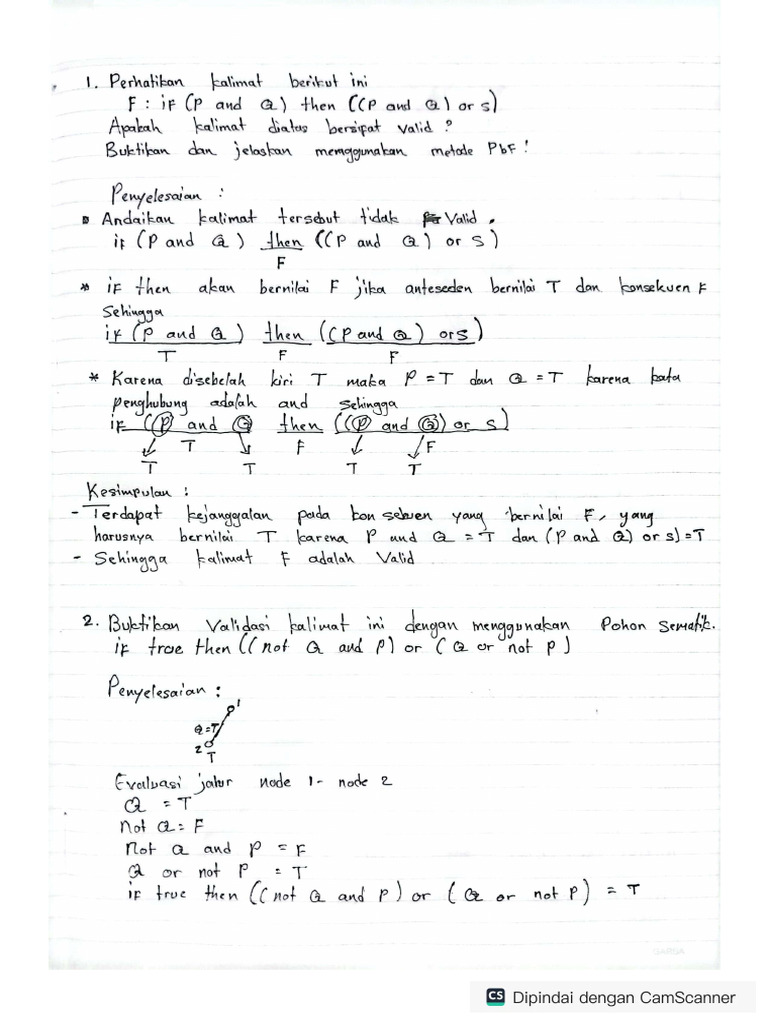 1. Perhatikan kalimat berikut ini
F : if (P and Q) then ((P and Q) or s)
Apakah kalimat diatas bersipat valid ?
Buktikan dan jelaskan menggunakan metode PbF !
Penyelesaian :
Andaikan kalimat tersebut tidak Valid.
if (P and Q) then ((P and Q) or s)
F
* if then akan bernilai F jika anteseden bernilai T dan konsekuen F
Sehingga
if (P and Q) then ((P and Q) or s)
T F F
* Karena disebelah kiri T maka P = T dan Q = T karena kata
penghubung adalah and sehingga
if ((P) and Q then ((P and Q) or s)
T F F
T T T T
Kesimpulan :
- Terdapat kejanggalan pada konsekuen yang bernilai F, yang
harusnya bernilai T karena P and Q = T dan (P and Q) or s) = T
- Sehingga kalimat F adalah Valid
2. Buktikan Validasi kalimat ini dengan menggunakan Pohon Sematik.
if true then ((not Q and P) or (Q or not P)
Penyelesaian :
1
Q=T
2
T
Evaluasi jalur node 1- node 2
Q = T
Not Q = F
Not Q and P = F
Q or not P = T
if true then ((not Q and P) or (Q or not P) = T
CS Dipindai dengan CamScanner